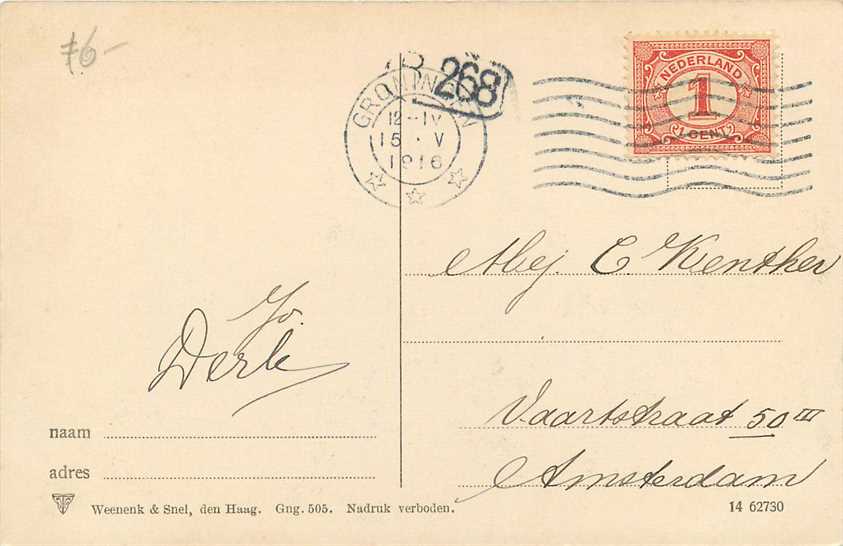 76-
268
GRONINGEN
12-IV
15 · V
1916
NEDERLAND
1
1 CENT
Mej. C Kenther
Jo.
Derk
Vaartstraat 50 III
Amsterdam
naam
adres
Weenenk & Snel, den Haag. Gng. 505. Nadruk verboden.
14 62730